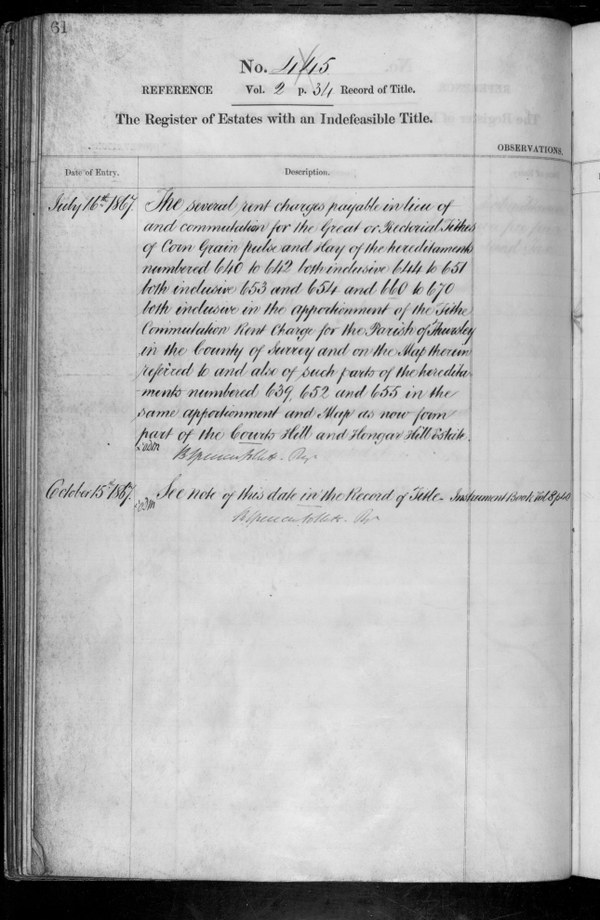 61
No. 445
REFERENCE Vol. 2 p. 34 Record of Title.
The Register of Estates with an Indefeasible Title.
OBSERVATIONS.
Date of Entry. Description.
July 16th 1867. The several rent charges payable in lieu of
and commutation for the Great or Rectorial Tithes
of Corn Grain pulse and Hay of the hereditaments
numbered 640 to 642 both inclusive 644 to 651
both inclusive 653 and 654 and 660 to 670
both inclusive in the apportionment of the Tithe
Commutation Rent Charge for the Parish of Thursley
in the County of Surrey and on the Map therein
referred to and also of such parts of the heredita-
ments numbered 639, 652 and 655 in the
same apportionment and Map as now form
part of the Courts Hill and Hengar Hill Estate.
Regr
October 15th 1867. See note of this date in the Record of Title - Instrument Book Vol. 8
Regr